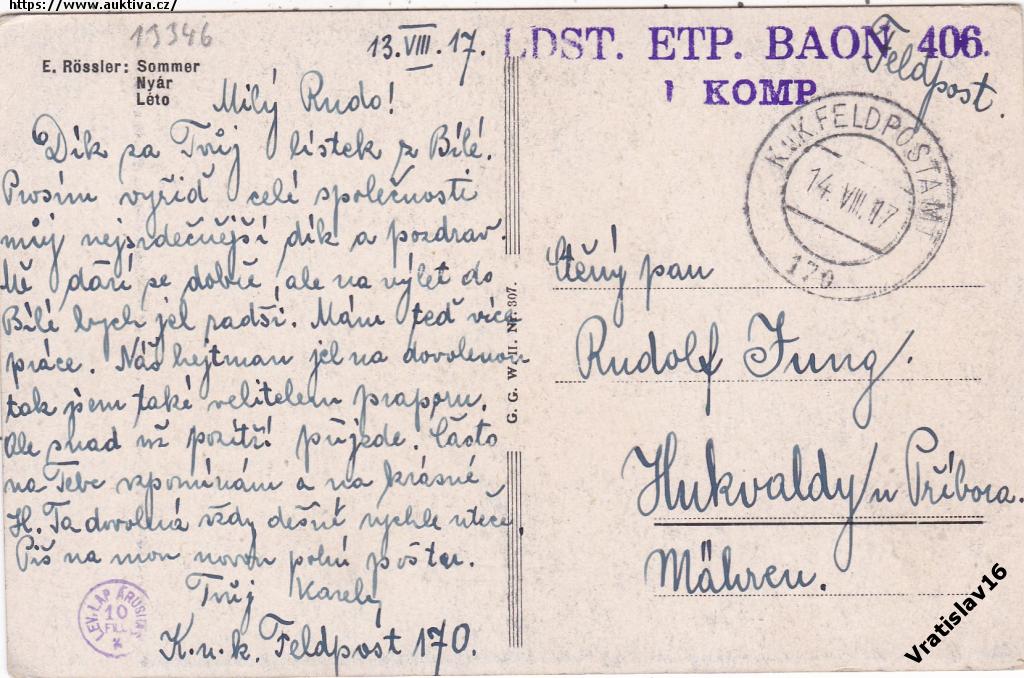 https://www.auktiva.cz/
19346
E. Rössler: Sommer
Nyár
Léto
13.VIII.17.
Milý Rudo!
Dík za Tvůj lístek z Bílé.
Prosím vyřiď celé společnosti
můj nejsrdečnější dík a pozdrav.
Mě daří se dobře, ale na výlet do
Bílé bych jel radši. Mám teď více
práce. Náš hejtman jel na dovolenou
tak jsem také velitelem praporu.
Ale snad už pozítří přijede. Často
na Tebe vzpomínám a na krásné
H. Ta dovolená vždy děsně rychle uteče.
Piš na mou novou polní poštu.
Tvůj Karel
K.u.k. Feldpost 170.
LEV. LAP ÁRUSITÁS
10
FILL
G. G. W. II. Nr. 307.
LDST. ETP. BAON 406.
1 KOMP
Feldpost.
K.u.K. FELDPOSTAMT
14. VIII. 17
170
Ctěný pan
Rudolf Jung
Hukvaldy u Příbora.
Mähren.
Vratislav16